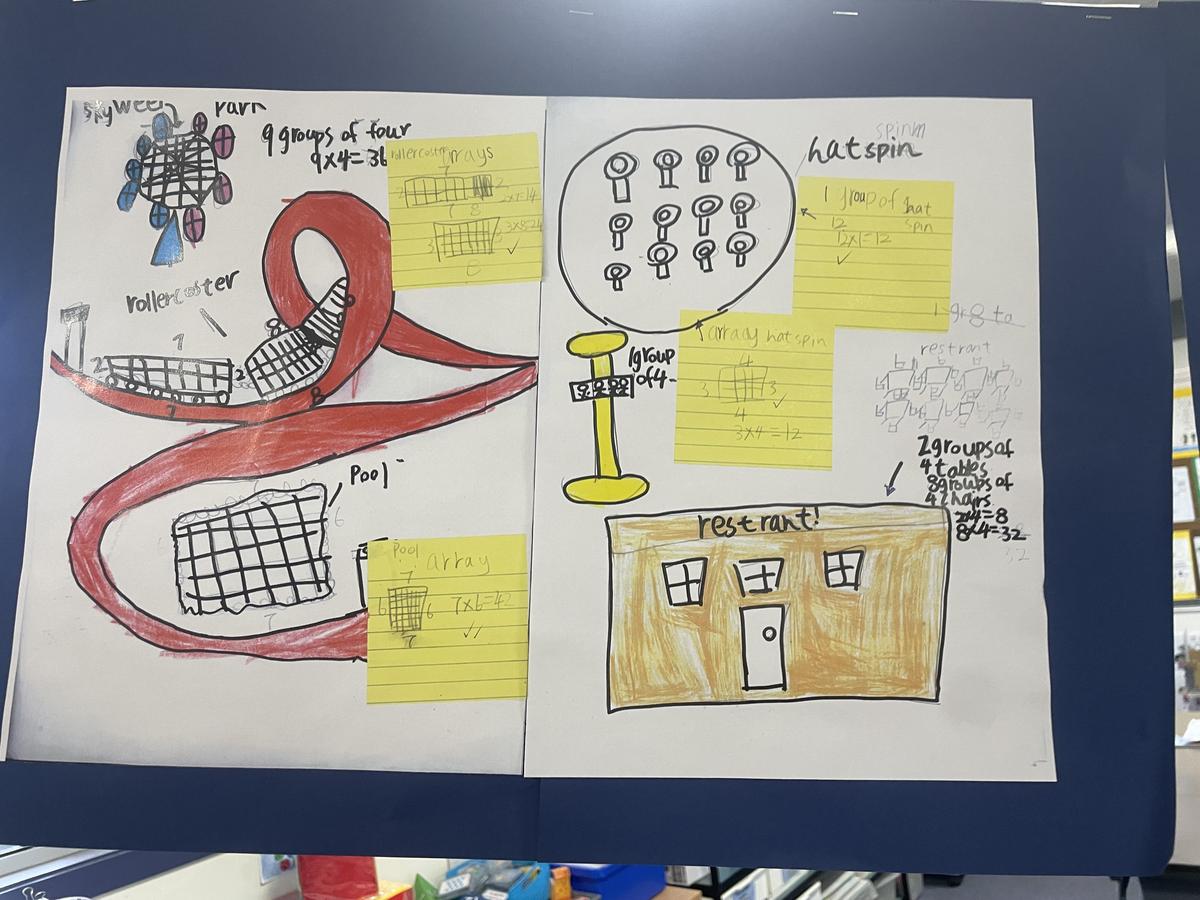 sky weel park
9 groups of four
9x4=36
rollercoster arrays
7
2 2
2x7=14
7 8
3x8=24
3 3
8
rollercoster
7
2 2
7
8
8
pool
6
6
7
pool array
7
6 6
7x6=42
7
spinm
hatspin
1 group of hat
12 spin
12x1=12
array hatspin
4
3 3
4
3x4=12
1group
of 4
1 gr8 to
restrant
2groups of
4 tables
8groups of
4 chairs
2x4=8
8x4=32
32
restrant!